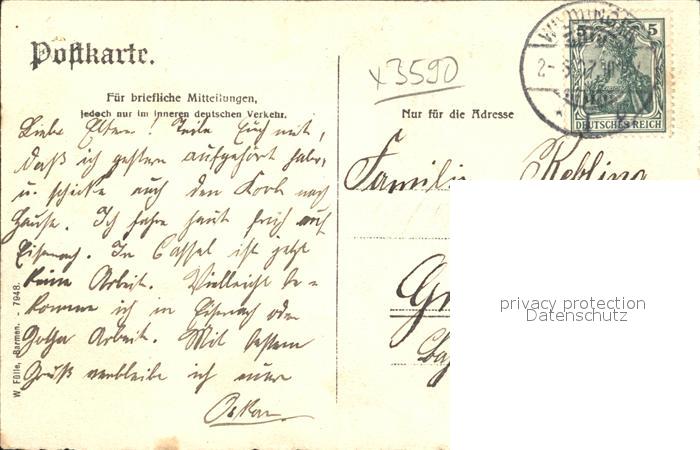 Postkarte.
Für briefliche Mitteilungen,
jedoch nur im inneren deutschen Verkehr.
Liebe Eltern! Teile Euch mit,
daß ich gestern aufgehört habe,
u. schicke auch den Korb nach
Hause. Ich fahre heut früh auf
Eisenach. In Cassel ist jetzt
keine Arbeit. Vielleicht be-
komme ich in Eisenach oder
Gotha Arbeit. Mit bestem
Gruß verbleibe ich euer
Oskar
W. Fülle, Barmen. - 7948.
x3590
Nur für die Adresse
5 5
DEUTSCHES REICH
Familie Rebling
privacy protection
Datenschutz